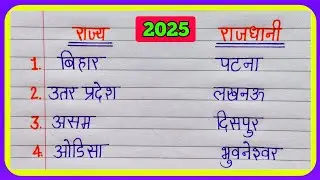 राज्य 2025 राजधानी
1. बिहार पटना
2. उतर प्रदेश लखनऊ
3. असम दिसपुर
4. ओडिसा भुवनेश्वर